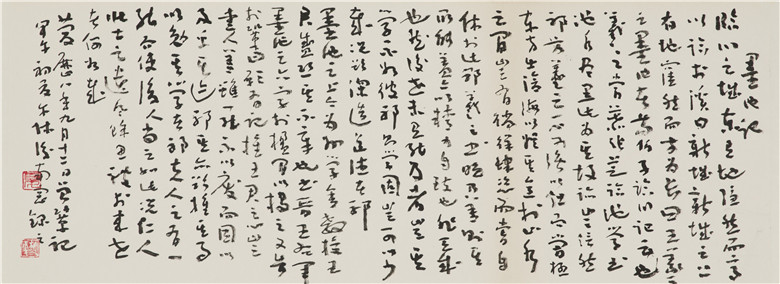 墨池記
臨川之城東有地隱然而高
以臨於溪曰新城新城之上
有池窪然而方以長曰王羲之
之墨池者荀伯子臨川記云也
羲之嘗慕張芝臨池學書
池水盡黑此為其故跡豈信然
邪方羲之之不可強以仕而嘗極
東方出滄海以娛其意於山水
之間豈有徜徉肆恣而嘗自
休於此邪羲之之書晚乃善則其
所能蓋亦以精力自致也非天成
也然後世未有能及者豈其
學不如彼邪則學固豈可以少
哉況欲深造道德者邪
墨池之上今為州學舍教授王
君盛恐其不章也書晉王右軍
墨池之六字於楹間以揭之又告
於鞏曰願有記推王君之心豈
愛人之善雖一能不以廢而因以
及乎其跡邪其亦欲推其事
以勉其學者邪夫人之有一
能而使後人尚之如此況仁人
莊士之遺風餘思被於來世
者何如哉
慶歷八年九月十二日曾鞏記
甲午初夏 錄之